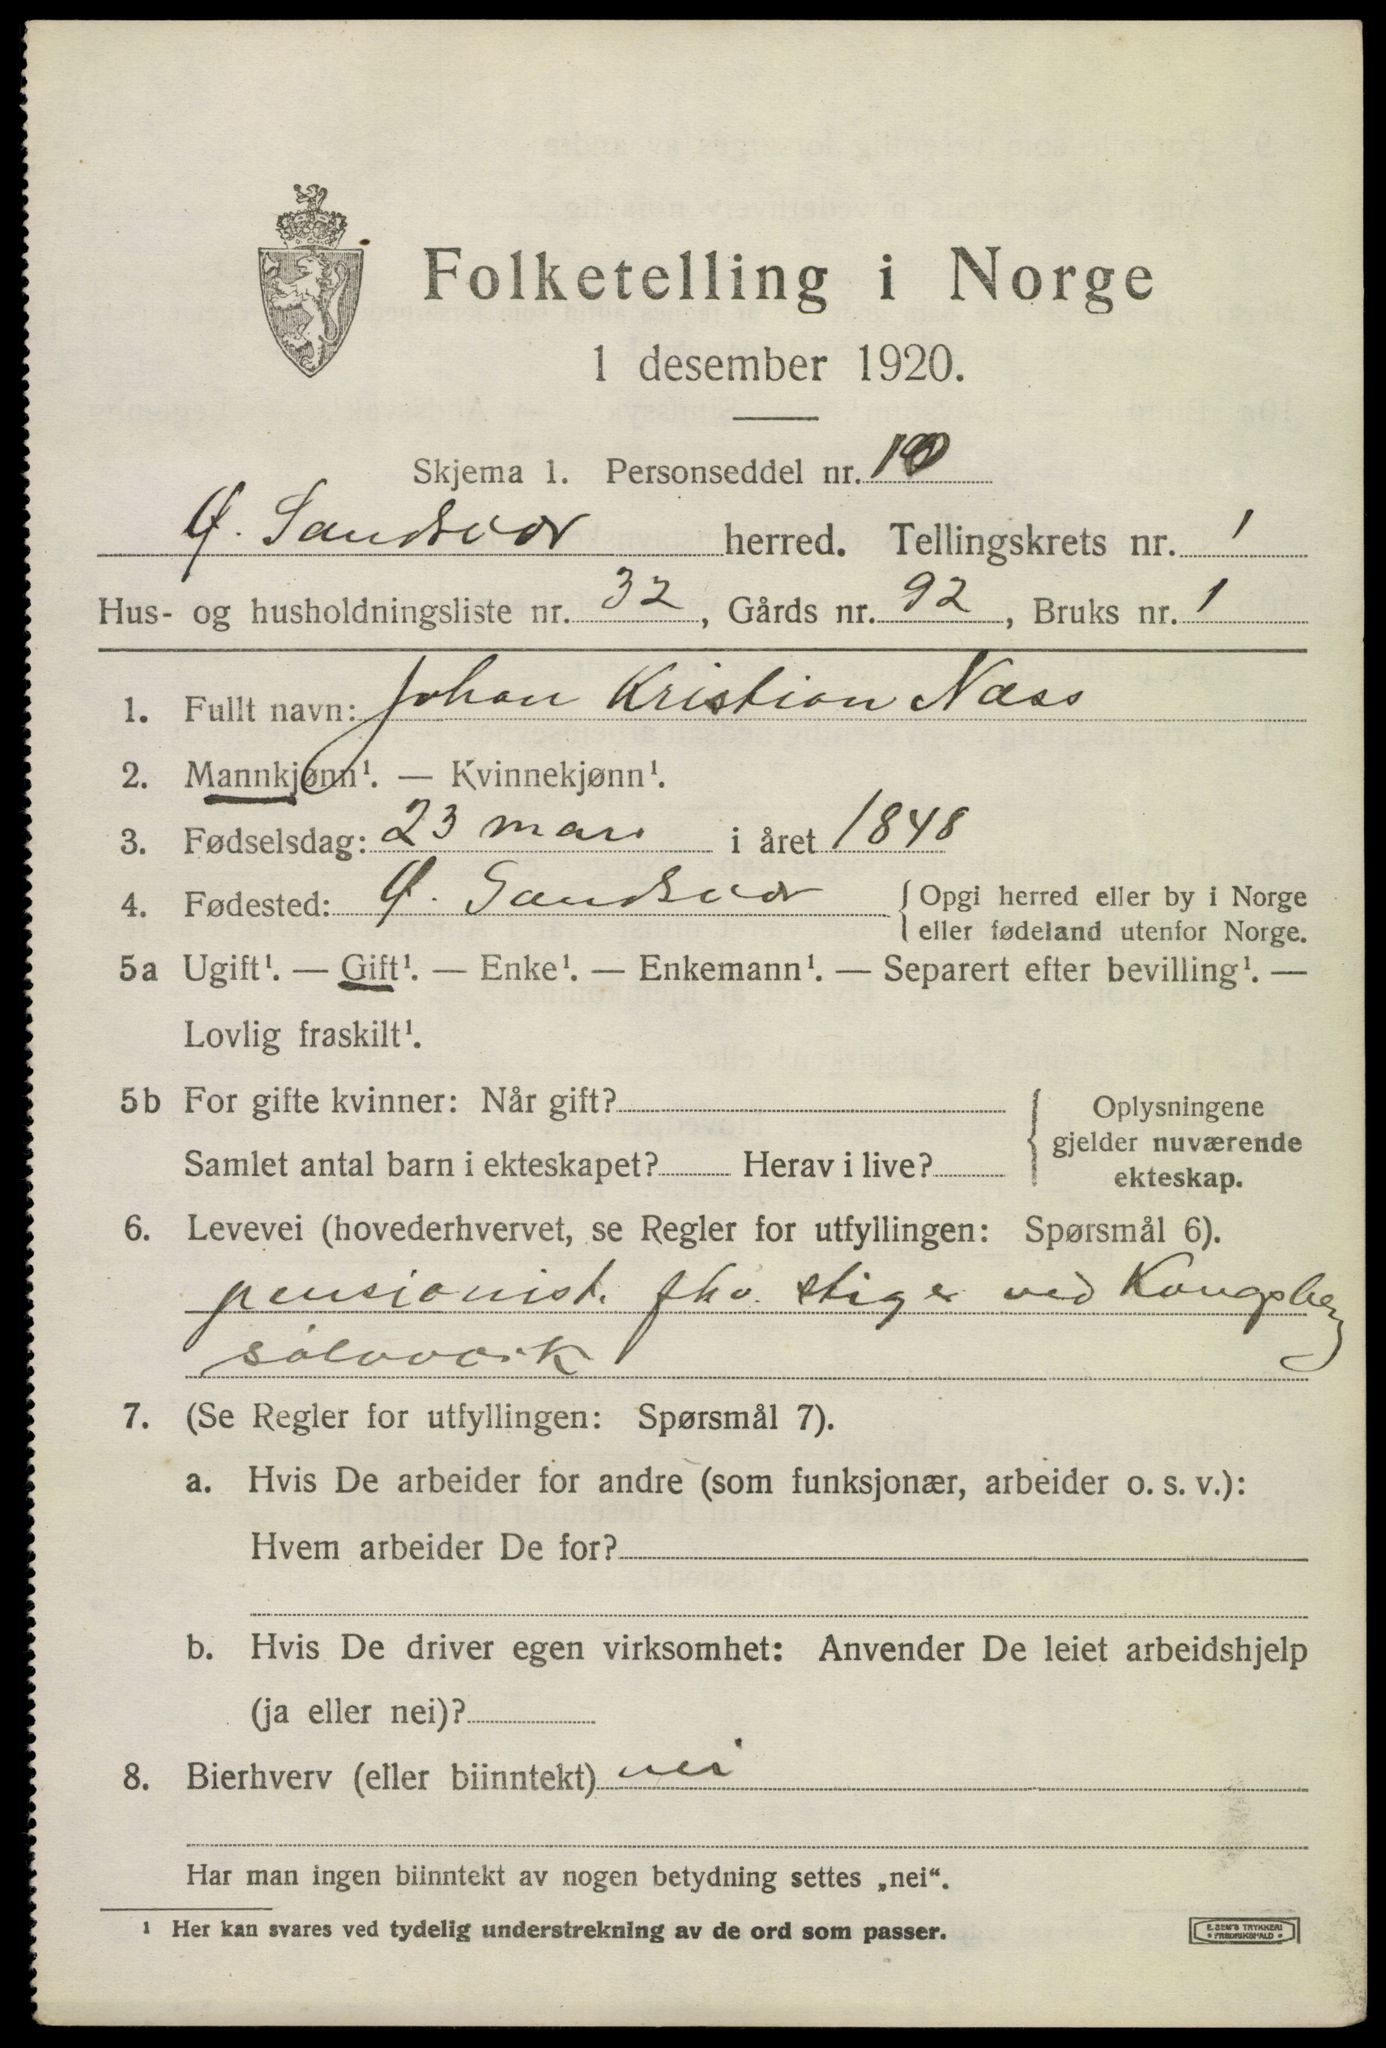 Folketelling i Norge
1 desember 1920.
Skjema 1. Personseddel nr.
Ø. Sandsvær herred. Tellingskrets nr. 1
Hus- og husholdningsliste nr. 32, Gårds nr. 92, Bruks nr. 1
1. Fullt navn: Johan Kristian Næss
2. Mannkjønn¹. — Kvinnekjønn¹.
3. Fødselsdag: 23 mars i året 1848
4. Fødested: Ø. Sandsvær { Opgi herred eller by i Norge
eller fødeland utenfor Norge.
5a Ugift¹. — Gift¹. — Enke¹. — Enkemann¹. — Separert efter bevilling¹. —
Lovlig fraskilt¹.
5b For gifte kvinner: Når gift?
Samlet antal barn i ekteskapet? Herav i live?
{ Oplysningene
gjelder nuværende
ekteskap.
6. Levevei (hovederhvervet, se Regler for utfyllingen: Spørsmål 6).
pensionist. fhv. stiger ved Kongsberg
sølvverk
7. (Se Regler for utfyllingen: Spørsmål 7).
a. Hvis De arbeider for andre (som funksjonær, arbeider o. s. v.):
Hvem arbeider De for?
b. Hvis De driver egen virksomhet: Anvender De leiet arbeidshjelp
(ja eller nei)?
8. Bierhverv (eller biinntekt) nei
Har man ingen biinntekt av nogen betydning settes „nei“.
¹ Her kan svares ved tydelig understrekning av de ord som passer.
E. SEM'S TRYKKERI
• FREDRIKSHALD •